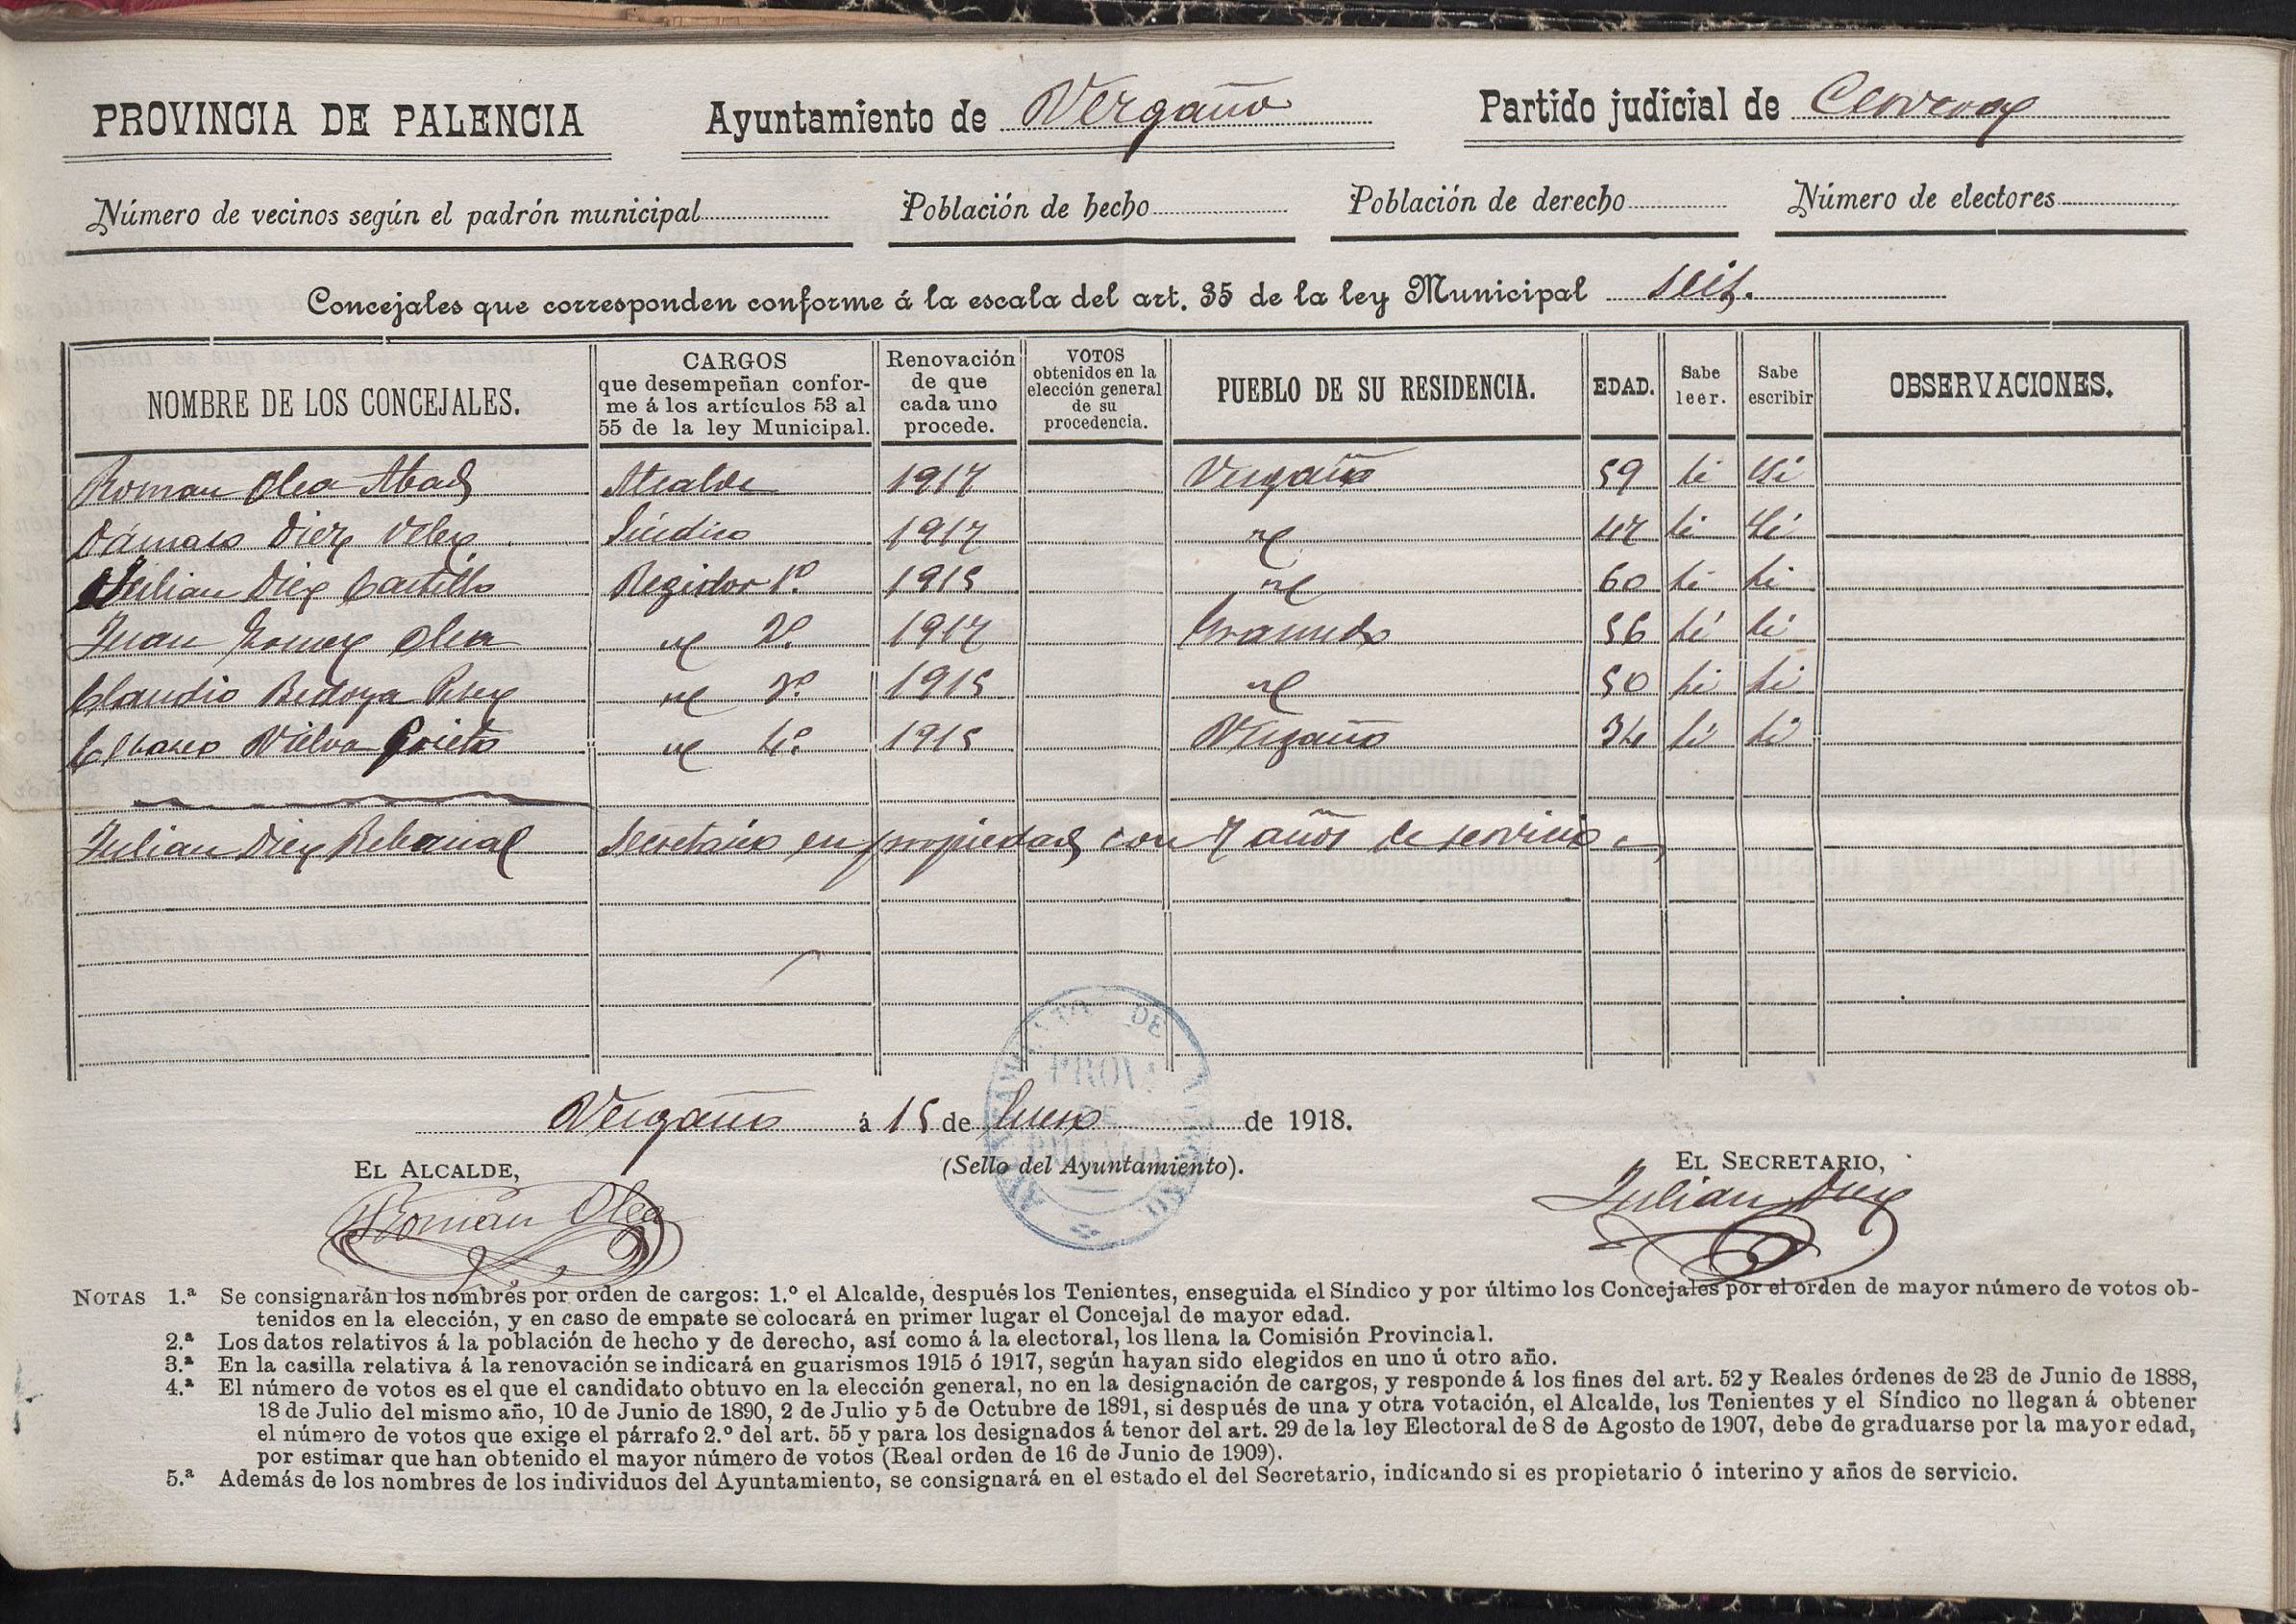 PROVINCIA DE PALENCIA Ayuntamiento de Vergaño Partido judicial de Cervera
Número de vecinos según el padrón municipal Población de hecho Población de derecho Número de electores
Concejales que corresponden conforme á la escala del art. 35 de la ley Municipal seis.
NOMBRE DE LOS CONCEJALES. CARGOS que desempeñan conforme á los artículos 53 al 55 de la ley Municipal. Renovación de que cada uno procede. VOTOS obtenidos en la elección general de su procedencia. PUEBLO DE SU RESIDENCIA. EDAD. Sabe leer. Sabe escribir OBSERVACIONES.
Roman Olea Abad Alcalde 1917 Vergaño 59 si si
Dámaso Diez Velez Síndico 1917 47 si si
Julian Diez Castillo Regidor 1º 1915 60 si si
Juan Gomez Olea 2º 1917 Gramedo 56 si si
Claudio Bedoya Perez 3º 1915 50 si si
Vielva Prieto 4º 1915 Vergaño 34 si si
Julian Diez Rebanal Secretario en propiedad con 7 años de servicio
Vergaño á 15 de Enero de 1918.
EL ALCALDE, (Sello del Ayuntamiento). EL SECRETARIO,
Román Olea Julian Diez
NOTAS 1.ª Se consignarán los nombres por orden de cargos: 1.º el Alcalde, después los Tenientes, enseguida el Síndico y por último los Concejales por el orden de mayor número de votos ob-
tenidos en la elección, y en caso de empate se colocará en primer lugar el Concejal de mayor edad.
2.ª Los datos relativos á la población de hecho y de derecho, así como á la electoral, los llena la Comisión Provincial.
3.ª En la casilla relativa á la renovación se indicará en guarismos 1915 ó 1917, según hayan sido elegidos en uno ú otro año.
4.ª El número de votos es el que el candidato obtuvo en la elección general, no en la designación de cargos, y responde á los fines del art. 52 y Reales órdenes de 23 de Junio de 1888,
18 de Julio del mismo año, 10 de Junio de 1890, 2 de Julio y 5 de Octubre de 1891, si después de una y otra votación, el Alcalde, los Tenientes y el Síndico no llegan á obtener
el número de votos que exige el párrafo 2.º del art. 55 y para los designados á tenor del art. 29 de la ley Electoral de 8 de Agosto de 1907, debe de graduarse por la mayor edad,
por estimar que han obtenido el mayor número de votos (Real orden de 16 de Junio de 1909).
5.ª Además de los nombres de los individuos del Ayuntamiento, se consignará en el estado el del Secretario, indicando si es propietario ó interino y años de servicio.